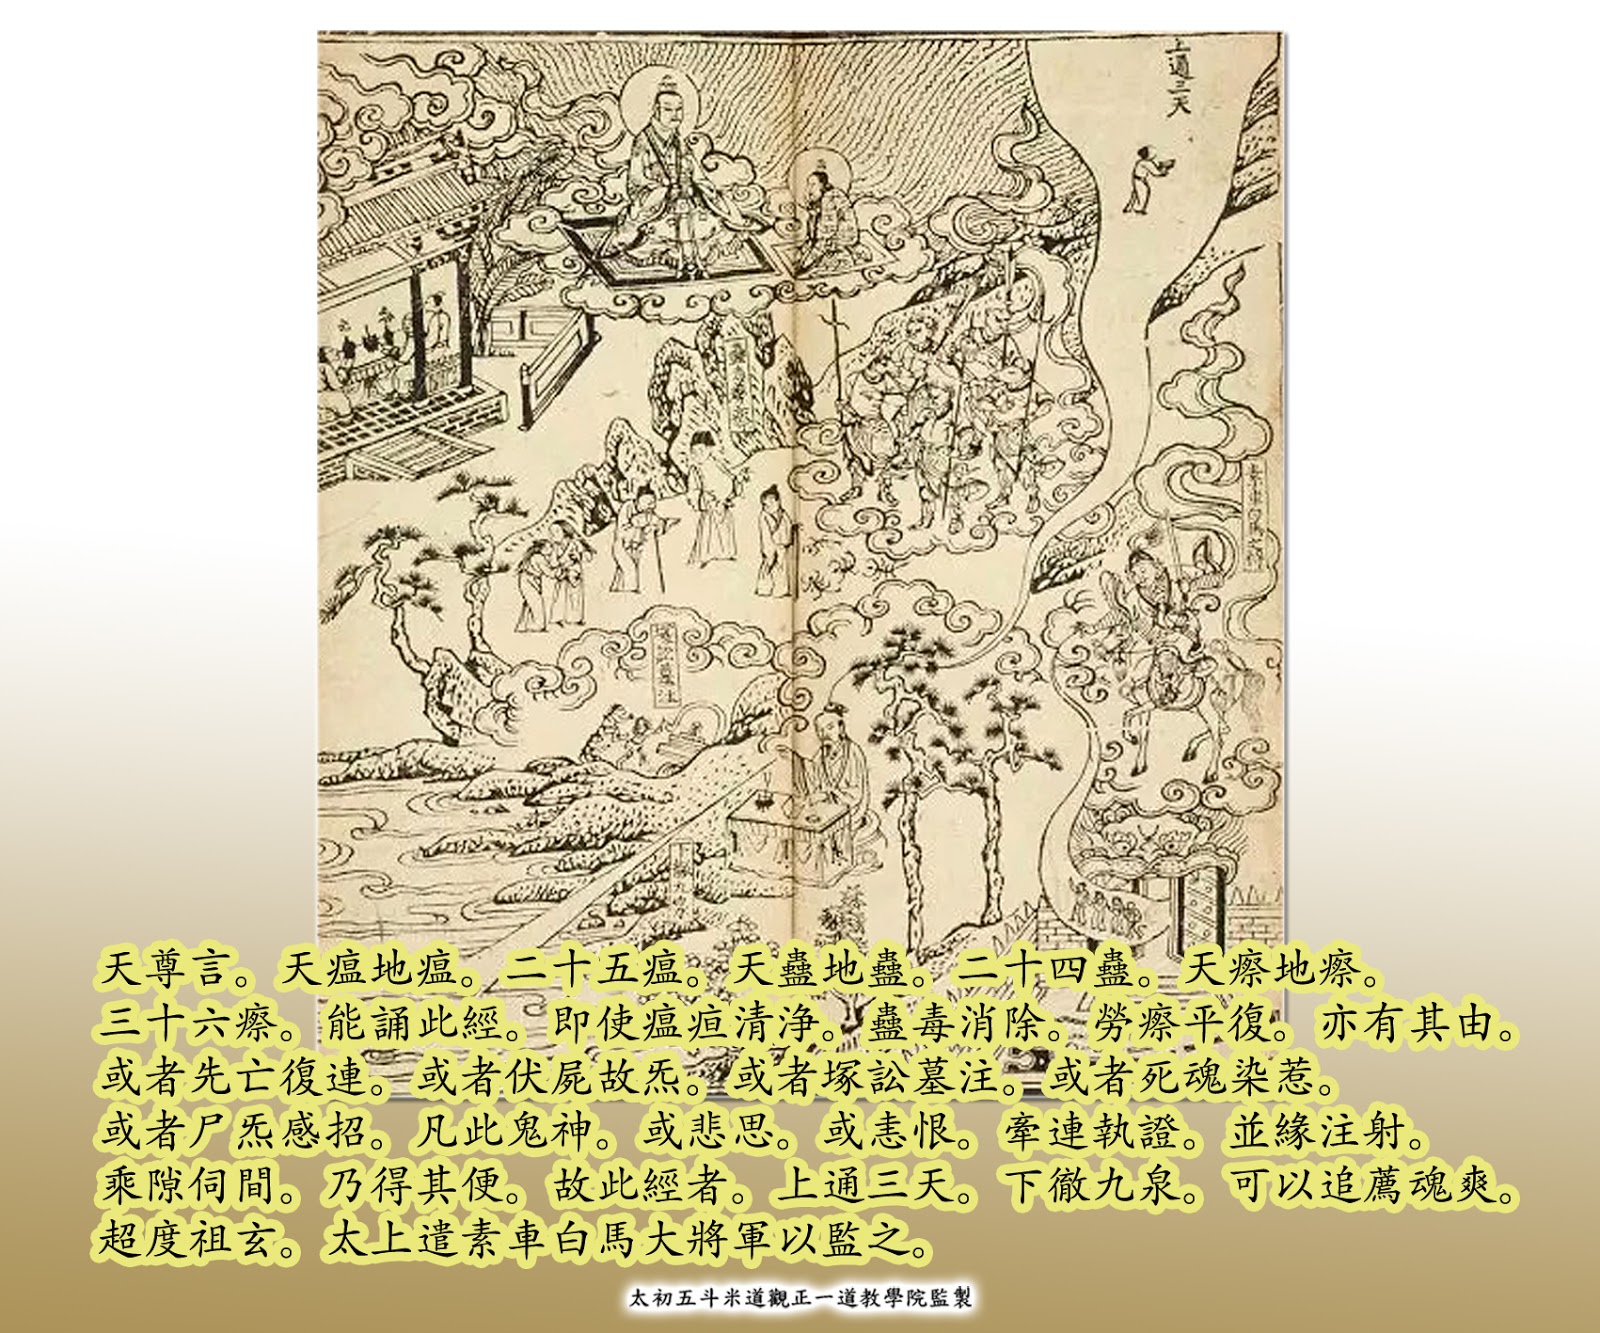 上通三天
塚訟墓注
天尊言。天瘟地瘟。二十五瘟。天蠱地蠱。二十四蠱。天瘵地瘵。
三十六瘵。能誦此經。即使瘟疸清浄。蠱毒消除。勞瘵平復。亦有其由。
或者先亡復連。或者伏屍故炁。或者塚訟墓注。或者死魂染惹。
或者尸炁感招。凡此鬼神。或悲思。或恚恨。牽連執證。並緣注射。
乘隙伺間。乃得其便。故此經者。上通三天。下徹九泉。可以追薦魂爽。
超度祖玄。太上遣素車白馬大將軍以監之。
太初五斗米道觀正一道教學院監製